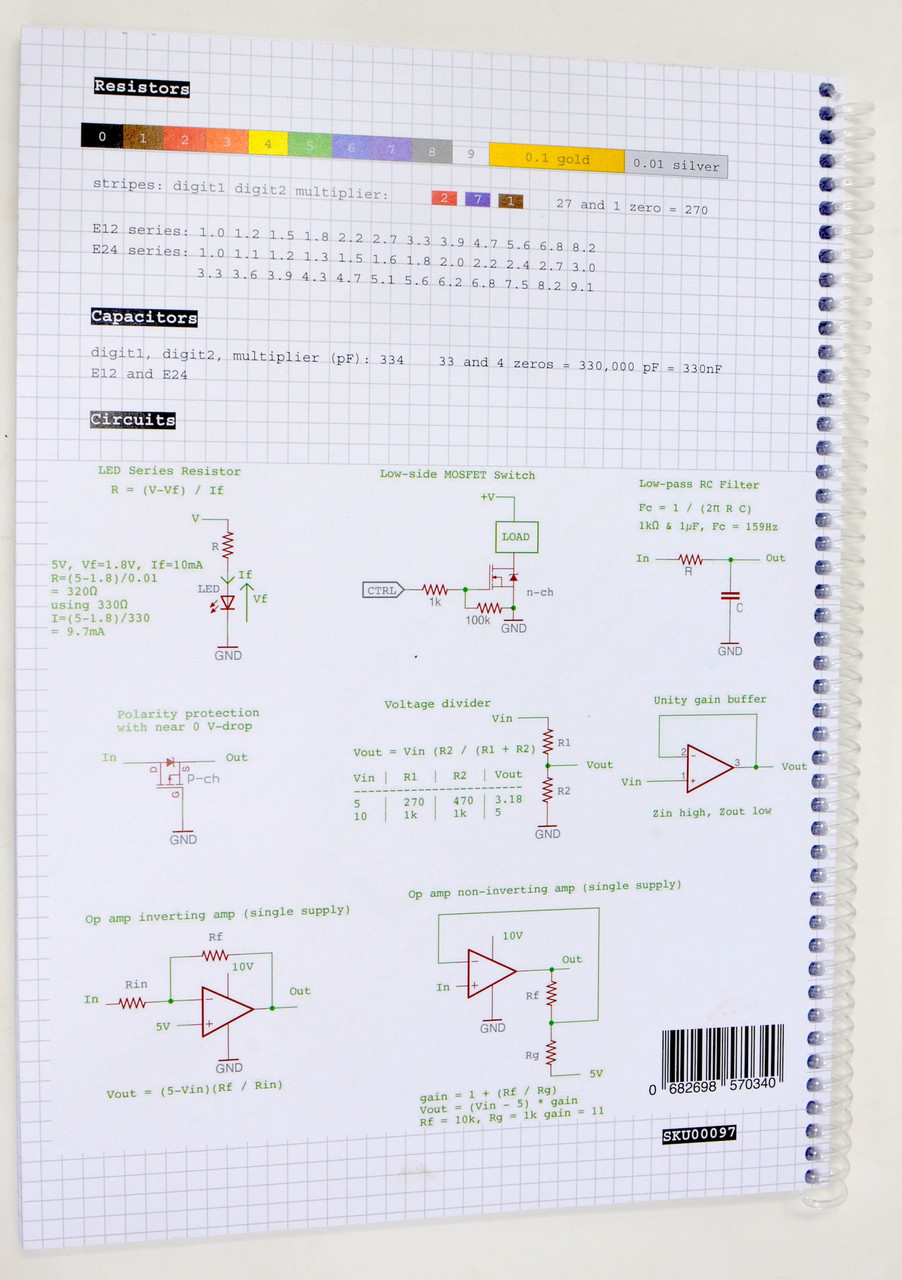 Resistors
0 1 2 3 4 5 6 7 8 9 0.1 gold 0.01 silver
stripes: digit1 digit2 multiplier: 2 7 1 27 and 1 zero = 270
E12 series: 1.0 1.2 1.5 1.8 2.2 2.7 3.3 3.9 4.7 5.6 6.8 8.2
E24 series: 1.0 1.1 1.2 1.3 1.5 1.6 1.8 2.0 2.2 2.4 2.7 3.0
3.3 3.6 3.9 4.3 4.7 5.1 5.6 6.2 6.8 7.5 8.2 9.1
Capacitors
digit1, digit2, multiplier (pF): 334 33 and 4 zeros = 330,000 pF = 330nF
E12 and E24
Circuits
LED Series Resistor
R = (V-Vf) / If
V
R
5V, Vf=1.8V, If=10mA
R=(5-1.8)/0.01
= 320Ω
using 330Ω
I=(5-1.8)/330
= 9.7mA
If
LED
Vf
GND
Low-side MOSFET Switch
+V
LOAD
CTRL
1k
n-ch
100k
GND
Low-pass RC Filter
Fc = 1 / (2π R C)
1kΩ & 1μF, Fc = 159Hz
In
R
Out
C
GND
Polarity protection
with near 0 V-drop
In
Out
D
S
P-ch
G
GND
Voltage divider
Vin
Vout = Vin (R2 / (R1 + R2)
R1
Vout
Vin | R1 | R2 | Vout
5 | 270 | 470 | 3.18
10 | 1k | 1k | 5
R2
GND
Unity gain buffer
2
-
Vin
1
+
3
Vout
Zin high, Zout low
Op amp inverting amp (single supply)
Rf
10V
Rin
In
-
Out
5V
+
GND
Vout = (5-Vin)(Rf / Rin)
Op amp non-inverting amp (single supply)
10V
-
Out
In
+
Rf
GND
Rg
5V
gain = 1 + (Rf / Rg)
Vout = (Vin - 5) * gain
Rf = 10k, Rg = 1k gain = 11
0 682698 570340
SKU00097